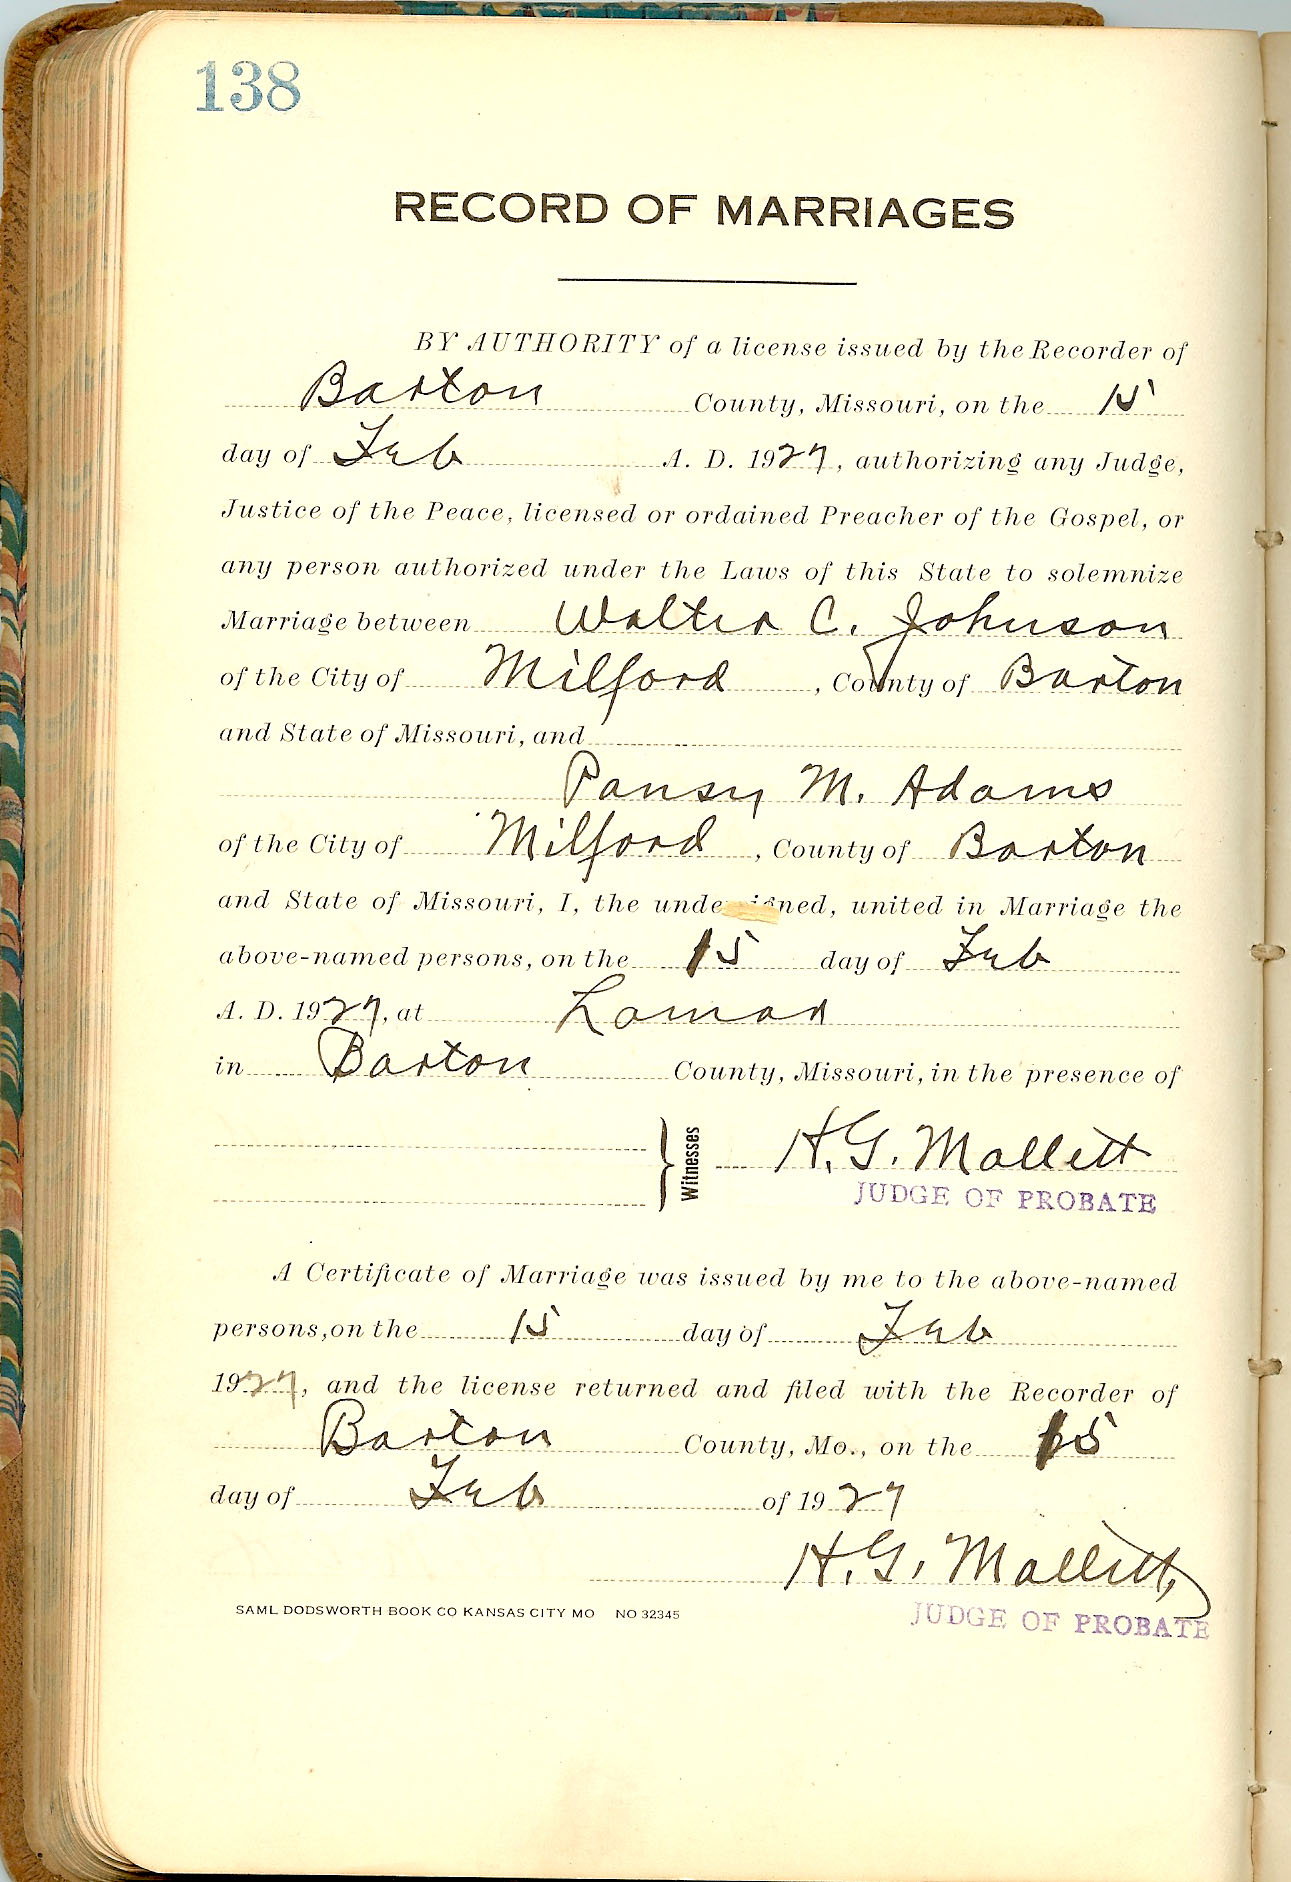 138
RECORD OF MARRIAGES
BY AUTHORITY of a license issued by the Recorder of
Barton County, Missouri, on the 15
day of Feb A. D. 1927, authorizing any Judge,
Justice of the Peace, licensed or ordained Preacher of the Gospel, or
any person authorized under the Laws of this State to solemnize
Marriage between Walter C. Johnson
of the City of Milford, County of Barton
and State of Missouri, and
Pansy M. Adams
of the City of Milford, County of Barton
and State of Missouri, I, the undersigned, united in Marriage the
above-named persons, on the 15 day of Feb
A. D. 1927, at Lamar
in Barton County, Missouri, in the presence of
Witnesses H. G. Mallett
JUDGE OF PROBATE
A Certificate of Marriage was issued by me to the above-named
persons, on the 15 day of Feb
1927, and the license returned and filed with the Recorder of
Barton County, Mo., on the 15
day of Feb of 1927
H. G. Mallett,
SAML DODSWORTH BOOK CO KANSAS CITY MO NO 32345
JUDGE OF PROBATE